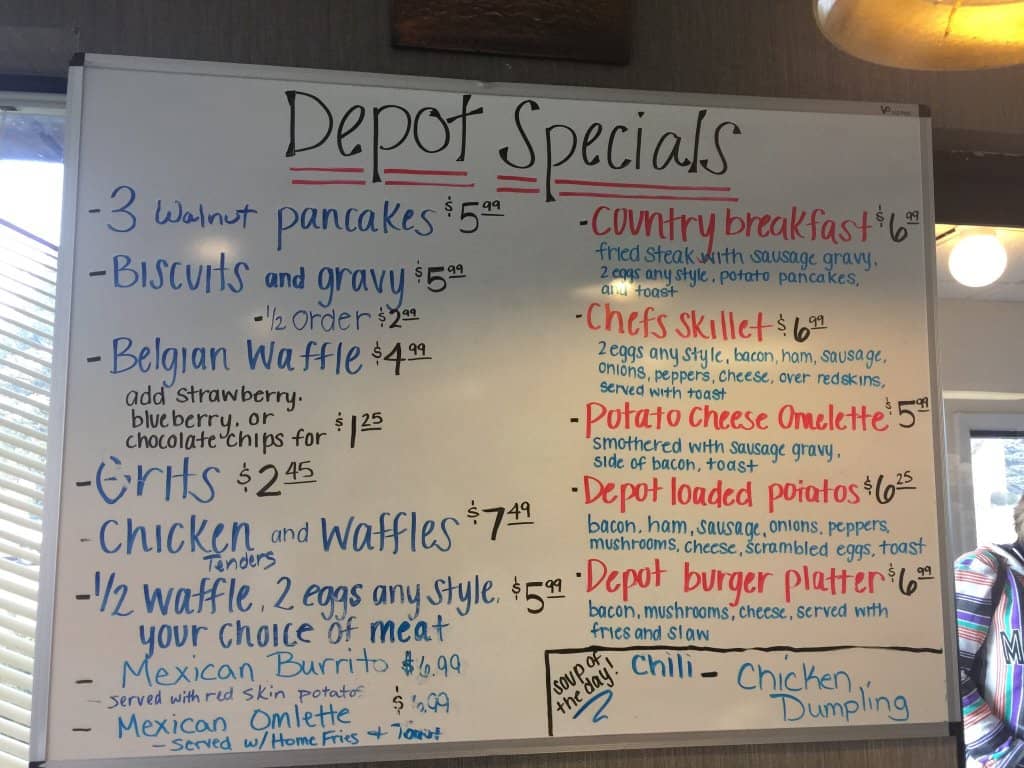 Depot Specials
- 3 Walnut pancakes $5.99
- Biscuits and gravy $5.99
- 1/2 order $2.99
- Belgian Waffle $4.99
add strawberry,
blueberry, or
chocolate chips for $1.25
- Grits $2.45
- Chicken and Waffles $7.49
Tenders
- 1/2 waffle, 2 eggs any style, $5.99
your choice of meat
- Mexican Burrito $6.99
- served with red skin potatos
- Mexican Omlette $6.99
- Served w/Home Fries + Toast
- Country breakfast $6.99
fried steak with sausage gravy,
2 eggs any style, potato pancakes,
and toast
- Chefs Skillet $6.99
2 eggs any style, bacon, ham, sausage,
onions, peppers, cheese, over redskins,
served with toast
- Potato Cheese Omelette $5.99
smothered with sausage gravy,
side of bacon, toast
- Depot loaded potatos $6.25
bacon, ham, sausage, onions, peppers,
mushrooms, cheese, scrambled eggs, toast
- Depot burger platter $6.99
bacon, mushrooms, cheese, served with
fries and slaw
soup of
the day!
Chili - Chicken
Dumpling
M